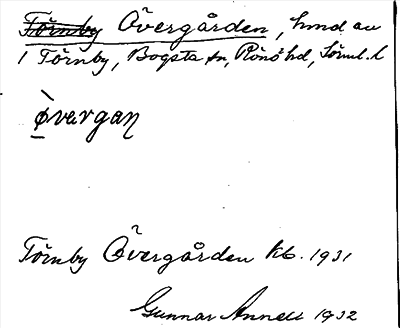 Törnby Övergården, hmd av
1 Törnby, Bogsta sn, Rönö hd, Södml. l
ø̀vergaɳ
Törnby Övergården kb. 1931
Gunnar Annell 1932